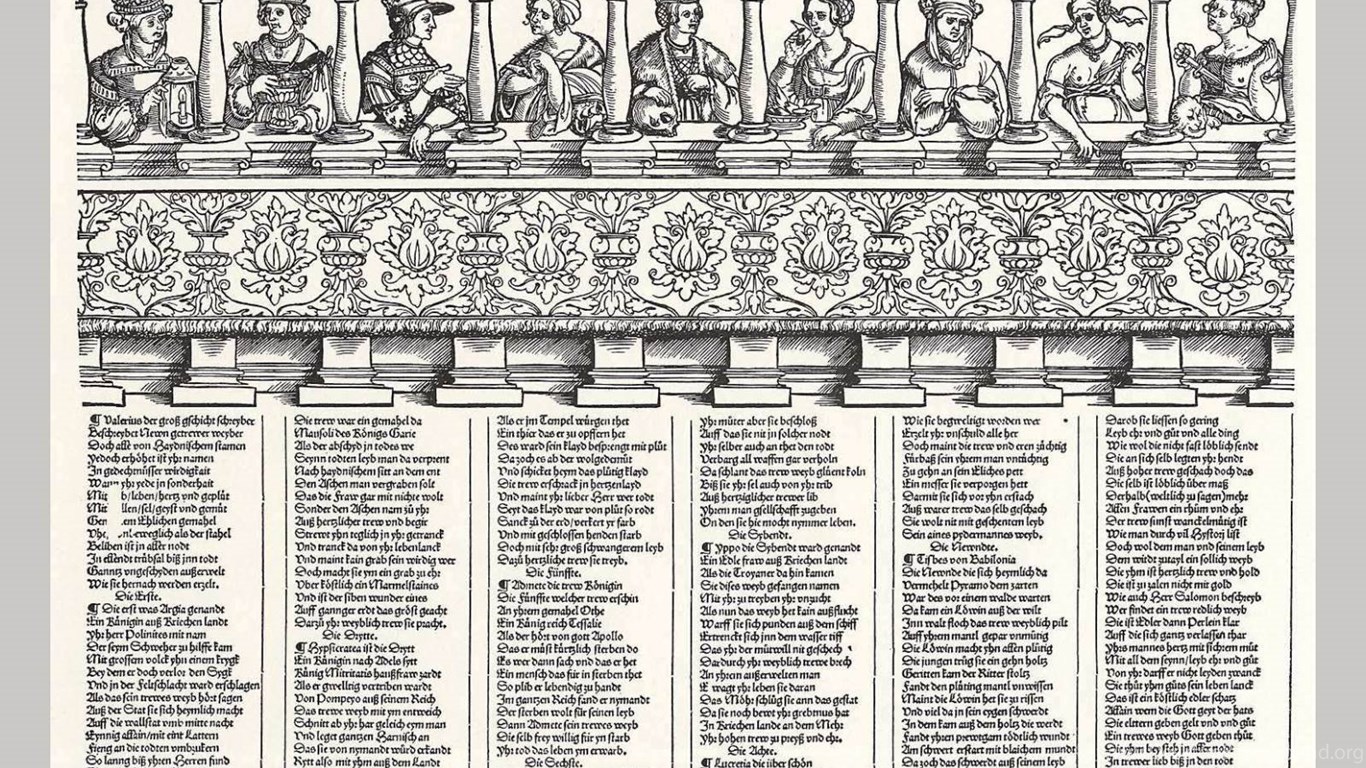 ¶ Valerius der groß gschicht schreyber
Beschreybet Newn getrewer weyber
Doch all von Haydnischem stamen
Ydoch erhöhet ist yhr namen
In gedechtnüsser wirdigkait
yhr yede jn sonderhait
Mit b/leben/hertz und geplüt
Mit len/sel/geyst und gemüt
Ehlichen gemahel
nl-eweglich als der stahel
Beliben ist jn aller nodt
In ellendt trübsal biß jnn todt
Gantz ungeschyden außerwelt
Wie sie hernach werden erzelt.
Die Erste.
¶ Die erst was Argia genandt
Ein Künigin auß Kriechen landt
Yhr herr Polinites mit nam
Der seym Schweher zu hilffe kam
Mit grossem volck yhn einem krygk
Bey dem er doch verlor den Sygk
Und jn der Feltschlacht ward erschlagen
Als das sein trewes weyb hört sagen
Auß der Stat sie sich heymlich macht
Auff die wallstat umb mitte nacht
Eynnig allain/mit eine Lattern
Fieng an die todten umbzukern
So lanng biß yhren Herren fund
Die trew war ein gemahel da
Mausoli des Königs Carie
Als der abschyd jn todes we
Seynn todten leyb man da verprent
Nach haydnischem sitt an dem ent
Den Aschen man vergraben solt
Das die Fraw gar mit nichte wolt
Sonder den Aschen nam zů yhr
Auß hertzlicher trew und begir
Strewt yhn teglich jn yhr getranck
Und tranck da von yhr lebenlanck
Und maint kain grab sein wirdig wer
Doch macht sie ym ein grab zu ehr
Uber köstlich ein Marmelstaines
Und ist der siben wunder eines
Auff gannger erdt das gröst geacht
Darzů yhr weyblich trew sie pracht.
Die Drytte.
¶ Hypsicratea ist die Drytt
Ein Künigin nach Adels sytt
Künig Mitritatis haußfraw zardt
Als er gwelltig vertriben wardt
Von Pompeyo auß seinem Reich
Das trewe weyb mit ym entweich
Schnit ab yhr har geleich eym man
Und leget gantzen Harnisch an
Das sie von nymandt würd erkandt
Rytt also mit yhm auß dem Landt
Als er jm Tempel würgen thet
Ein thier das er zu opffern het
Des ward sein klayd besprengt mit plüt
Da zoch es ab der wolgedemüt
Und schicket heym das plütig klayd
Die trew erschrack jn hertzenlayd
Und maint yhr lieber Herr wer todt
Seyt das klayd war von plüt so rodt
Sanck zů der erd/verkert yr farb
Und mit geschlossen henden starb
Doch mit sehr groß schwangerem leyb
Dazů hertzliche trew sie treyb.
Die Fünffte.
¶ Admete die trew Königin
Die Fünffte welcher trew erschin
An yhrem gemahel Othe
Ein Künig reich Tessalie
Als der hört von gott Apollo
Das er müst kürtzlich sterben do
Es wer dann sach und das er het
Ein mensch das für in sterben thet
So plib er lebendig zu handt
Im gantzen Reich fand er nymandt
Der sterben wolt für seinen leyb
Dann Admete sein trewes weyb
Die selb frey willig für yn starb
Yhr tod das leben ym erwarb.
Die Sechste.
yhr müter aber sie beschloß
Auff das sie nit jn solcher nodt
yhr selber auch an thet den todt
Verbarg all waffen gar verholn
Da schlant das trew weyb glüent koln
Biß sie yhr sel auch von yhr trib
Auß hertziglicher trewer lib
yhrem man gsellschafft zugeben
On den sie hie mocht nymmer leben.
Die Sybendt.
¶ Yppo die Sybendt ward genandt
Ein Edle fraw auß Kriechen landt
Als die Troyaner da hin kamen
Sie dises weyb gefangen namen
Mit yhr zu treyben yhr unzucht
Als nun das weyb het kain außflucht
Warff sie sich punden auß dem schiff
Ertrenckt sich jnn dem wasser tiff
Das yhr der mütwill nit geschech
Dardurch yhr weyblich trewe brech
An yhrem außerwelten man
E wagt yhr leben sie daran
Das Möhr schlüg sie ann das gestat
Da sie noch bewt yhr grebnus hat
In Kriechen landt an dem Mehr
Yhr hohen trew zu preyß und ehr.
Die Achte.
¶ Lucretia die über schön
Wie sie begweltigt worden wer
Erzelt yhr unschuld alle her
Doch maint die trew und eren züchtig
Fürbaß sein yhrem man untüchtig
Zu gehn an sein Eliches pett
Ein messer sie verporgen hett
Darmit sie sich vor yhn erstach
Auß warer trew das selb geschach
Sie wolt nit mit geschentem leyb
Sein aines pydermannes weyb.
Die Newndte.
¶ Tisbes von Babilonia
Die Newnde die sich heymlich da
Vermehelt Pyramo dem zarten
War des vor einem walde warten
Da kam ein Löwin auß der wilt
Inn walt floch das trew weyblich pilt
Auff yhrem mantl gepar unmütig
Die Löwin macht yhn allen plütig
Die jungen trüg sie ein gehn holtz
Geritten kam der Ritter stoltz
Fandt den plüting mantl unwissen
Maint die Löwin het sie zů rissen
Und viel da jn sein eygen schwerdt
In dem kam auß dem holtz die werdt
Fandt yhren prewtgam tödtlich wundt
Am schwert erstart mit blaichem mundt
Da zoch das schwerdt auß seinem leyb
Darob sie liessen so gering
Leyb ehr und güt und alle ding
Wie wol die nicht fast löblich sendt
Die an sich selb legten yhr hendt
Auß hoher trew geschach doch das
Die selb ist löblich über maß
Derhalb(weltlich zu sagen)mehr
Allen Frawen ein rhüm und ehr
Der trew sunst wanckelmütig ist
Wie man durch vil Hystorj list
Doch wol dem man und seinem leyb
Dem widt zuayl ein sollich weyb
Die yhm ist hertzlich trew und hold
Die ist zu zalen nicht mit gold
Wie auch Herr Salomon beschreyb
Wer findet ein trew redlich weyb
Die ist Edler dann Perlein klar
Auff die sich gantz verlassen thar
Yhrs mannes hertz mit sichrem müt
Mit all dem seynn/leyb ehr und güt
Von yhr darff er nicht leyden zwanck
Sie thüt yhm güts sein leben lanck
Das ist ein köstlich edler schatz
Allain wem die Gott geyt der hats
Die eltern geben gelt und und güt
Ein trewes weyb Gott geben thüt
Die yhm bey steh jn aller nodt
In trewer lieb biß in den todt
d.org